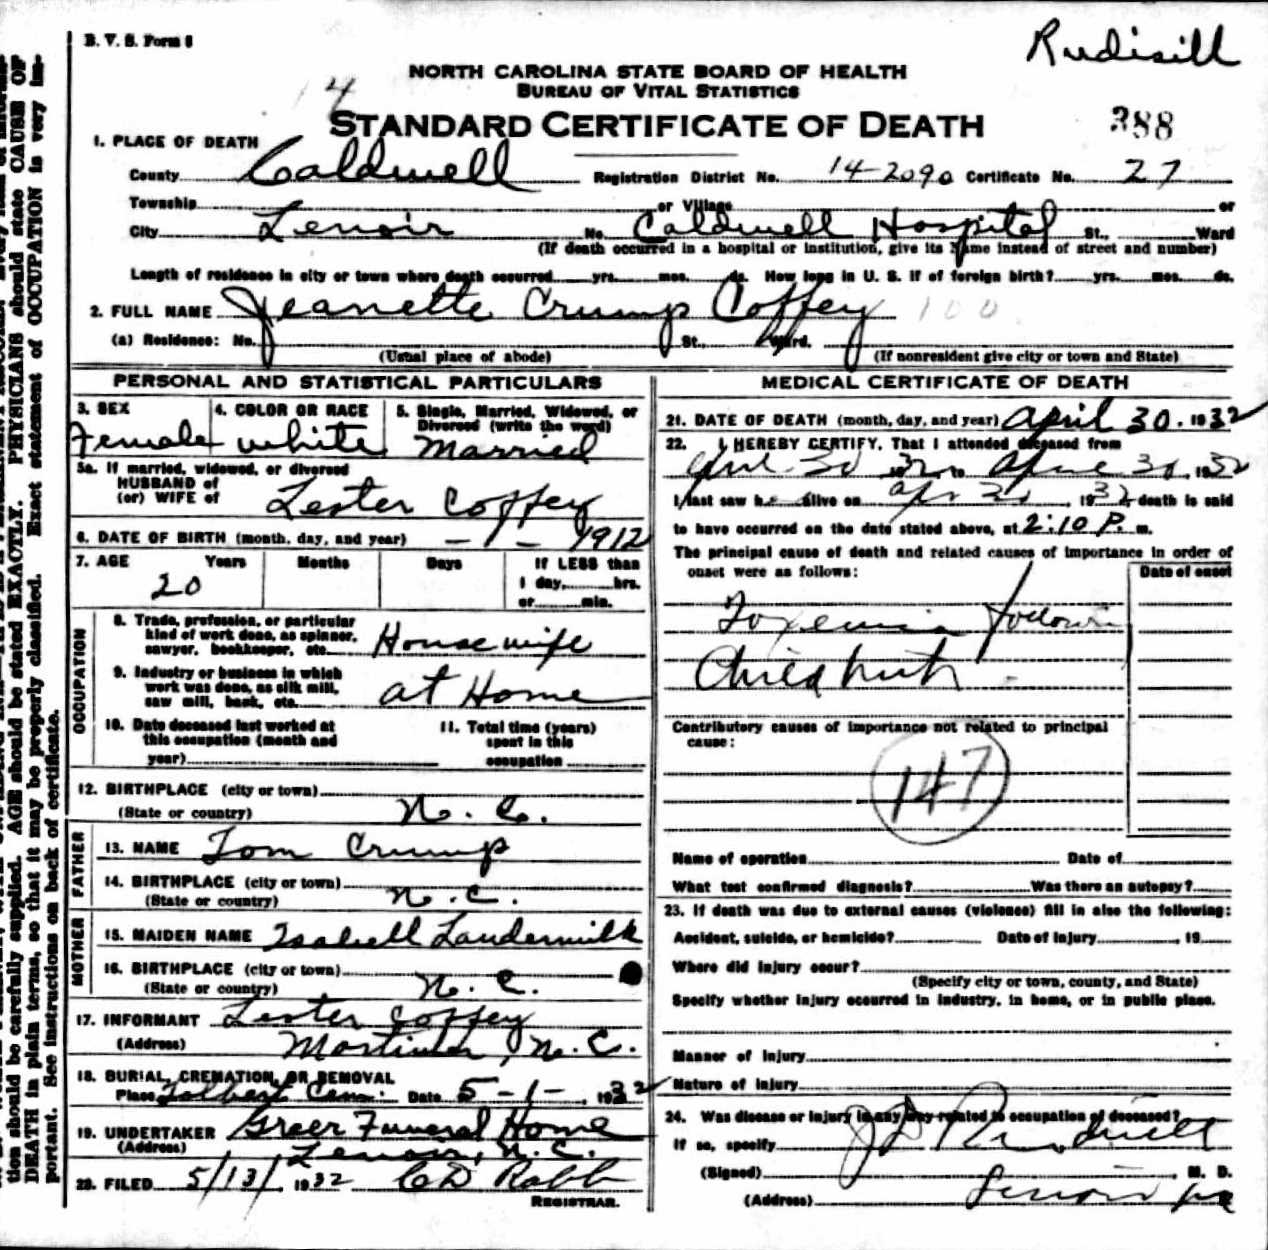 B. V. S. Form 8
Rudisill
NORTH CAROLINA STATE BOARD OF HEALTH
BUREAU OF VITAL STATISTICS
14
STANDARD CERTIFICATE OF DEATH
388
1. PLACE OF DEATH
County Caldwell Registration District No. 14-2090 Certificate No. 27
Township or Village or
City Lenoir No. Caldwell Hospital St., Ward
(If death occurred in a hospital or institution, give its Name instead of street and number)
Length of residence in city or town where death occurred yrs. mos. ds. How long in U. S. if of foreign birth? yrs. mos. ds.
2. FULL NAME Jeanette Crump Coffey 100
(a) Residence: No. St., Ward.
(Usual place of abode) (If nonresident give city or town and State)
PERSONAL AND STATISTICAL PARTICULARS
3. SEX 4. COLOR OR RACE 5. Single, Married, Widowed, or
Divorced (write the word)
Female white Married
5a. If married, widowed, or divorced
HUSBAND of
(or) WIFE of Lester Coffey
6. DATE OF BIRTH (month, day, and year) - 1 - 1912
7. AGE Years Months Days If LESS than
20 1 day, hrs.
or min.
OCCUPATION
8. Trade, profession, or particular
kind of work done, as spinner,
sawyer, bookkeeper, etc. Housewife
9. Industry or business in which
work was done, as silk mill,
saw mill, bank, etc. at Home
10. Date deceased last worked at
this occupation (month and
year)
11. Total time (years)
spent in this
occupation
12. BIRTHPLACE (city or town)
(State or country) N. C.
FATHER
13. NAME Tom Crump
14. BIRTHPLACE (city or town)
(State or country) N. C.
MOTHER
15. MAIDEN NAME Isabell Laudermilk
16. BIRTHPLACE (city or town)
(State or country) N. C.
17. INFORMANT Lester Coffey
(Address) Mortimer, N. C.
18. BURIAL, CREMATION, OR REMOVAL
Place Tolbert Cem. Date 5-1-, 1932
19. UNDERTAKER Greer Funeral Home
(Address) Lenoir, N. C.
20. FILED 5/13/, 1932 C D Rabb
REGISTRAR.
MEDICAL CERTIFICATE OF DEATH
21. DATE OF DEATH (month, day, and year) April 30. 1932
22. I HEREBY CERTIFY, That I attended deceased from
April 30 1932 to April 30, 1932
I last saw he alive on Apr 30, 1932 death is said
to have occurred on the date stated above, at 2:10 P. m.
The principal cause of death and related causes of importance in order of
onset were as follows: Date of onset
Toxemia following
Child birth
Contributory causes of importance not related to principal
cause:
147
Name of operation Date of
What test confirmed diagnosis? Was there an autopsy?
23. If death was due to external causes (violence) fill in also the following:
Accident, suicide, or homicide? Date of injury, 19
Where did injury occur?
(Specify city or town, county, and State)
Specify whether injury occurred in industry, in home, or in public place.
Manner of Injury
Nature of Injury
24. Was disease or injury in any way related to occupation of deceased?
If so, specify
(Signed) J D Rudisill, M. D.
(Address) Lenoir NC
tion should be carefully supplied. AGE should be stated EXACTLY. PHYSICIANS should state CAUSE OF
DEATH in plain terms, so that it may be properly classified. Exact statement of OCCUPATION is very im-
portant. See instructions on back of certificate.